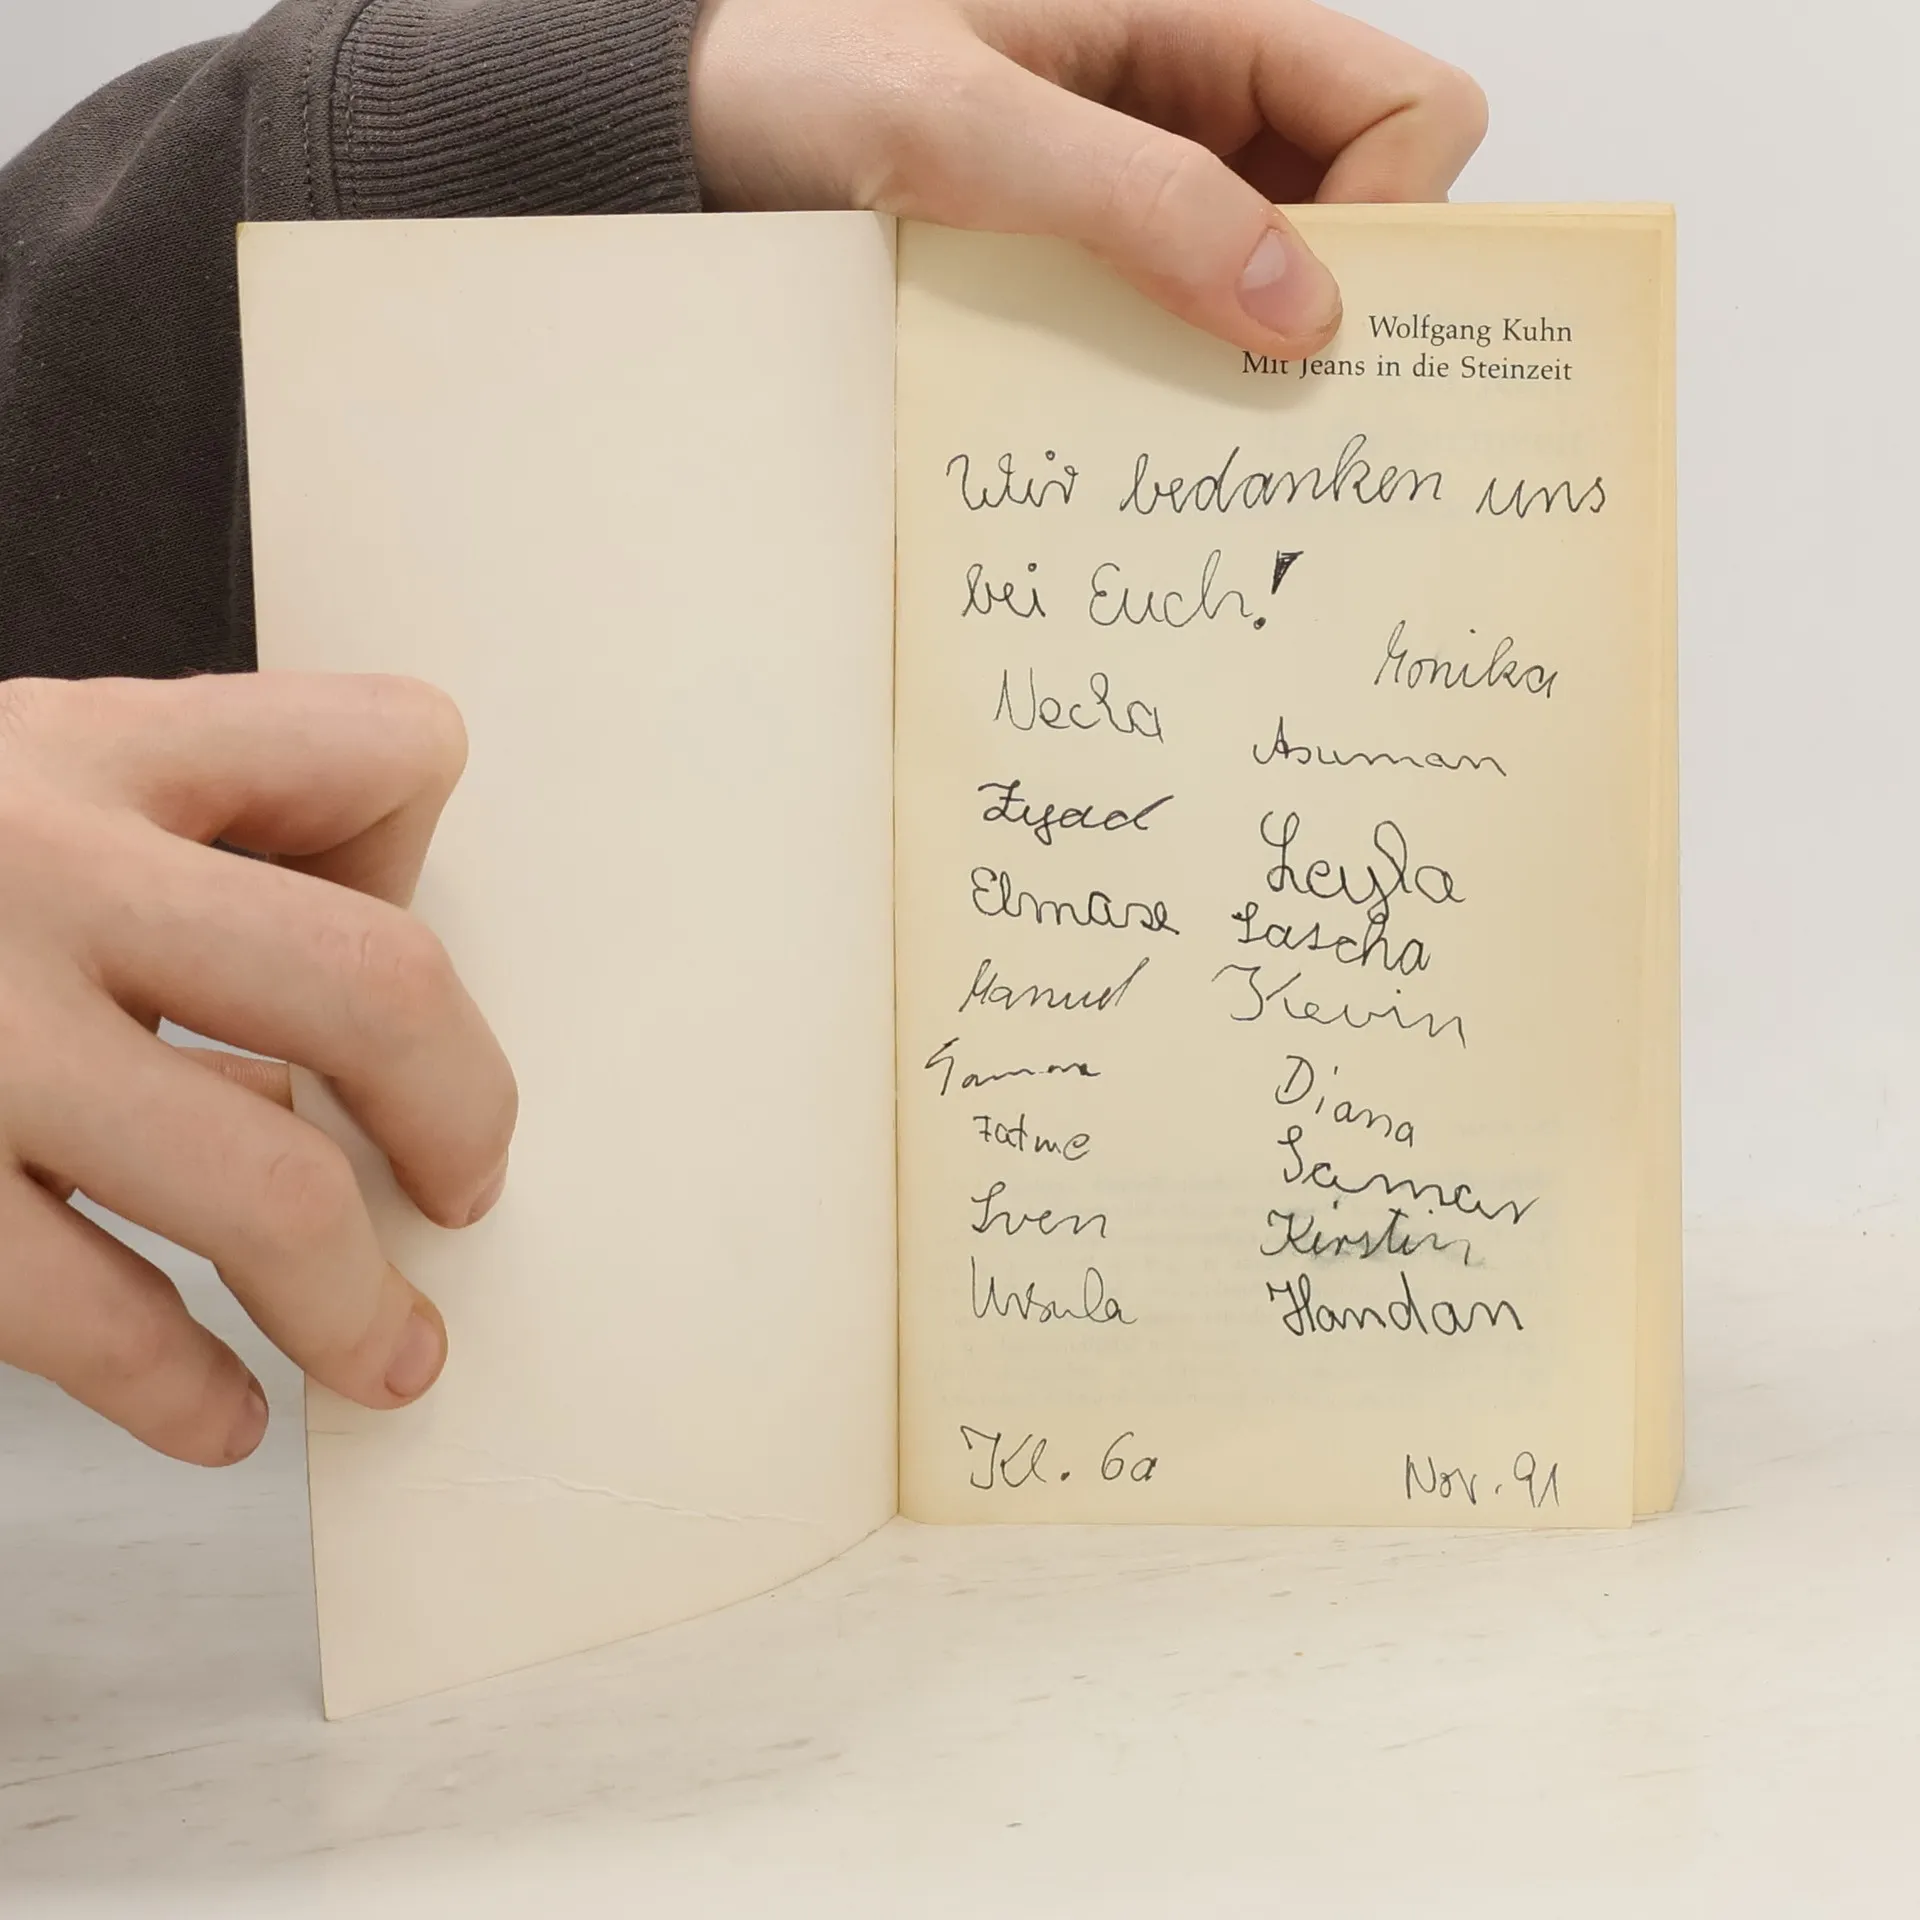 Wolfgang Kuhn
Mit Jeans in die Steinzeit
Wir bedanken uns
bei Euch!
Monika
Asuman
Zyad
Leyla
Elmase
Sascha
Manuel
Kevin
Diana
Fatme
Samar
Sven
Kirstin
Ursula
Handan
Kl. 6a
Nov. 91